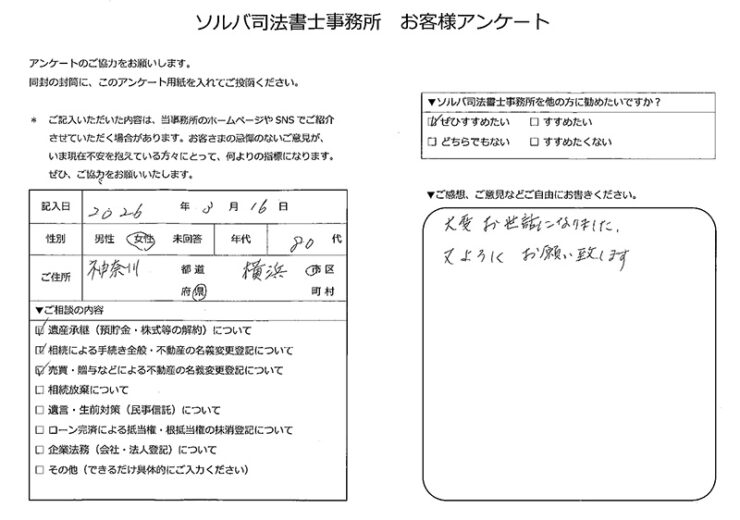 ソルバ司法書士事務所　お客様アンケート
アンケートのご協力をお願いします。
同封の封筒に、このアンケート用紙を入れてご投函ください。
＊ ご記入いただいた内容は、当事務所のホームページやSNSでご紹介
させていただく場合があります。お客さまの忌憚のないご意見が、
いま現在不安を抱えている方々にとって、何よりの指標になります。
ぜひ、ご協力をお願いいたします。
記入日 2026 年 3 月 16 日
性別 男性 女性 未回答 年代 80 代
ご住所 神奈川 都道府県 横浜 市区町村
▼ご相談の内容
☑ 遺産承継（預貯金・株式等の解約）について
☑ 相続による手続き全般・不動産の名義変更登記について
☑ 売買・贈与などによる不動産の名義変更登記について
□ 相続放棄について
□ 遺言・生前対策（民事信託）について
□ ローン完済による抵当権・根抵当権の抹消登記について
□ 企業法務（会社・法人登記）について
□ その他（できるだけ具体的にご入力ください）
▼ソルバ司法書士事務所を他の方に勧めたいですか？
☑ ぜひすすめたい □ すすめたい
□ どちらでもない □ すすめたくない
▼ご感想、ご意見などご自由にお書きください。
大変お世話になりました。
又よろしくお願い致します